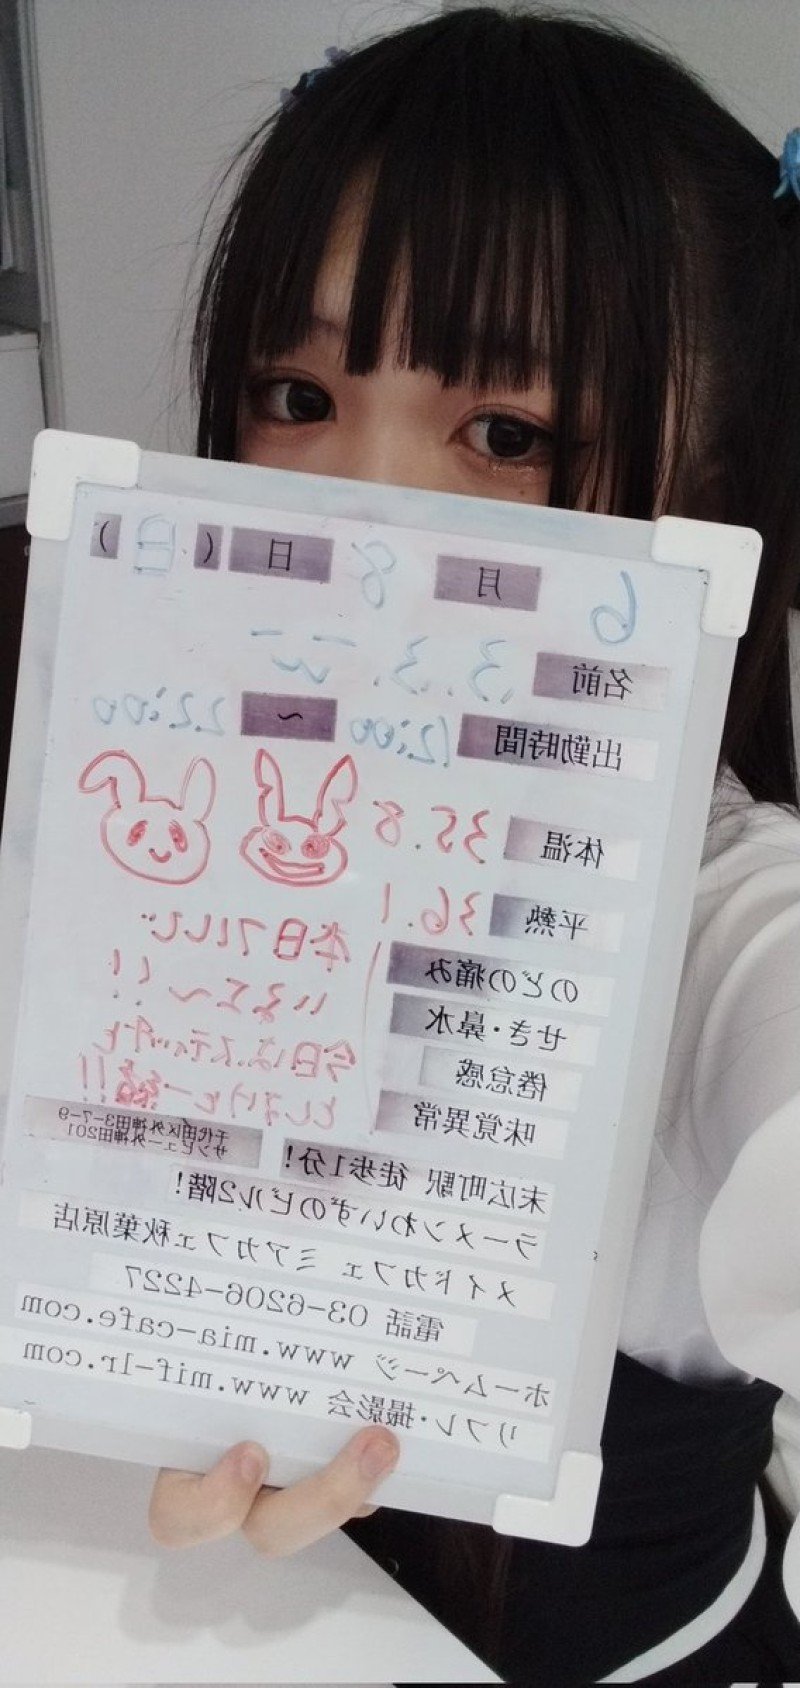 6月8日(日)
名前 3.3.
出勤時間 12:00 ~ 22:00
体温 35.8
平熱 36.1
のどの痛み
せき・鼻水
倦怠感
味覚異常
本日
いるよ〜!!
今日はスティッチと
一緒!!
千代田区外神田3-7-9
サンビュー外神田201
末広町駅 徒歩1分!
ラーメンわいずのビル2階!
メイドカフェ ミアカフェ秋葉原店
電話 03-6206-4227
ホームページ www.mia-cafe.com
リフレ・撮影会 www.mif-lr.com